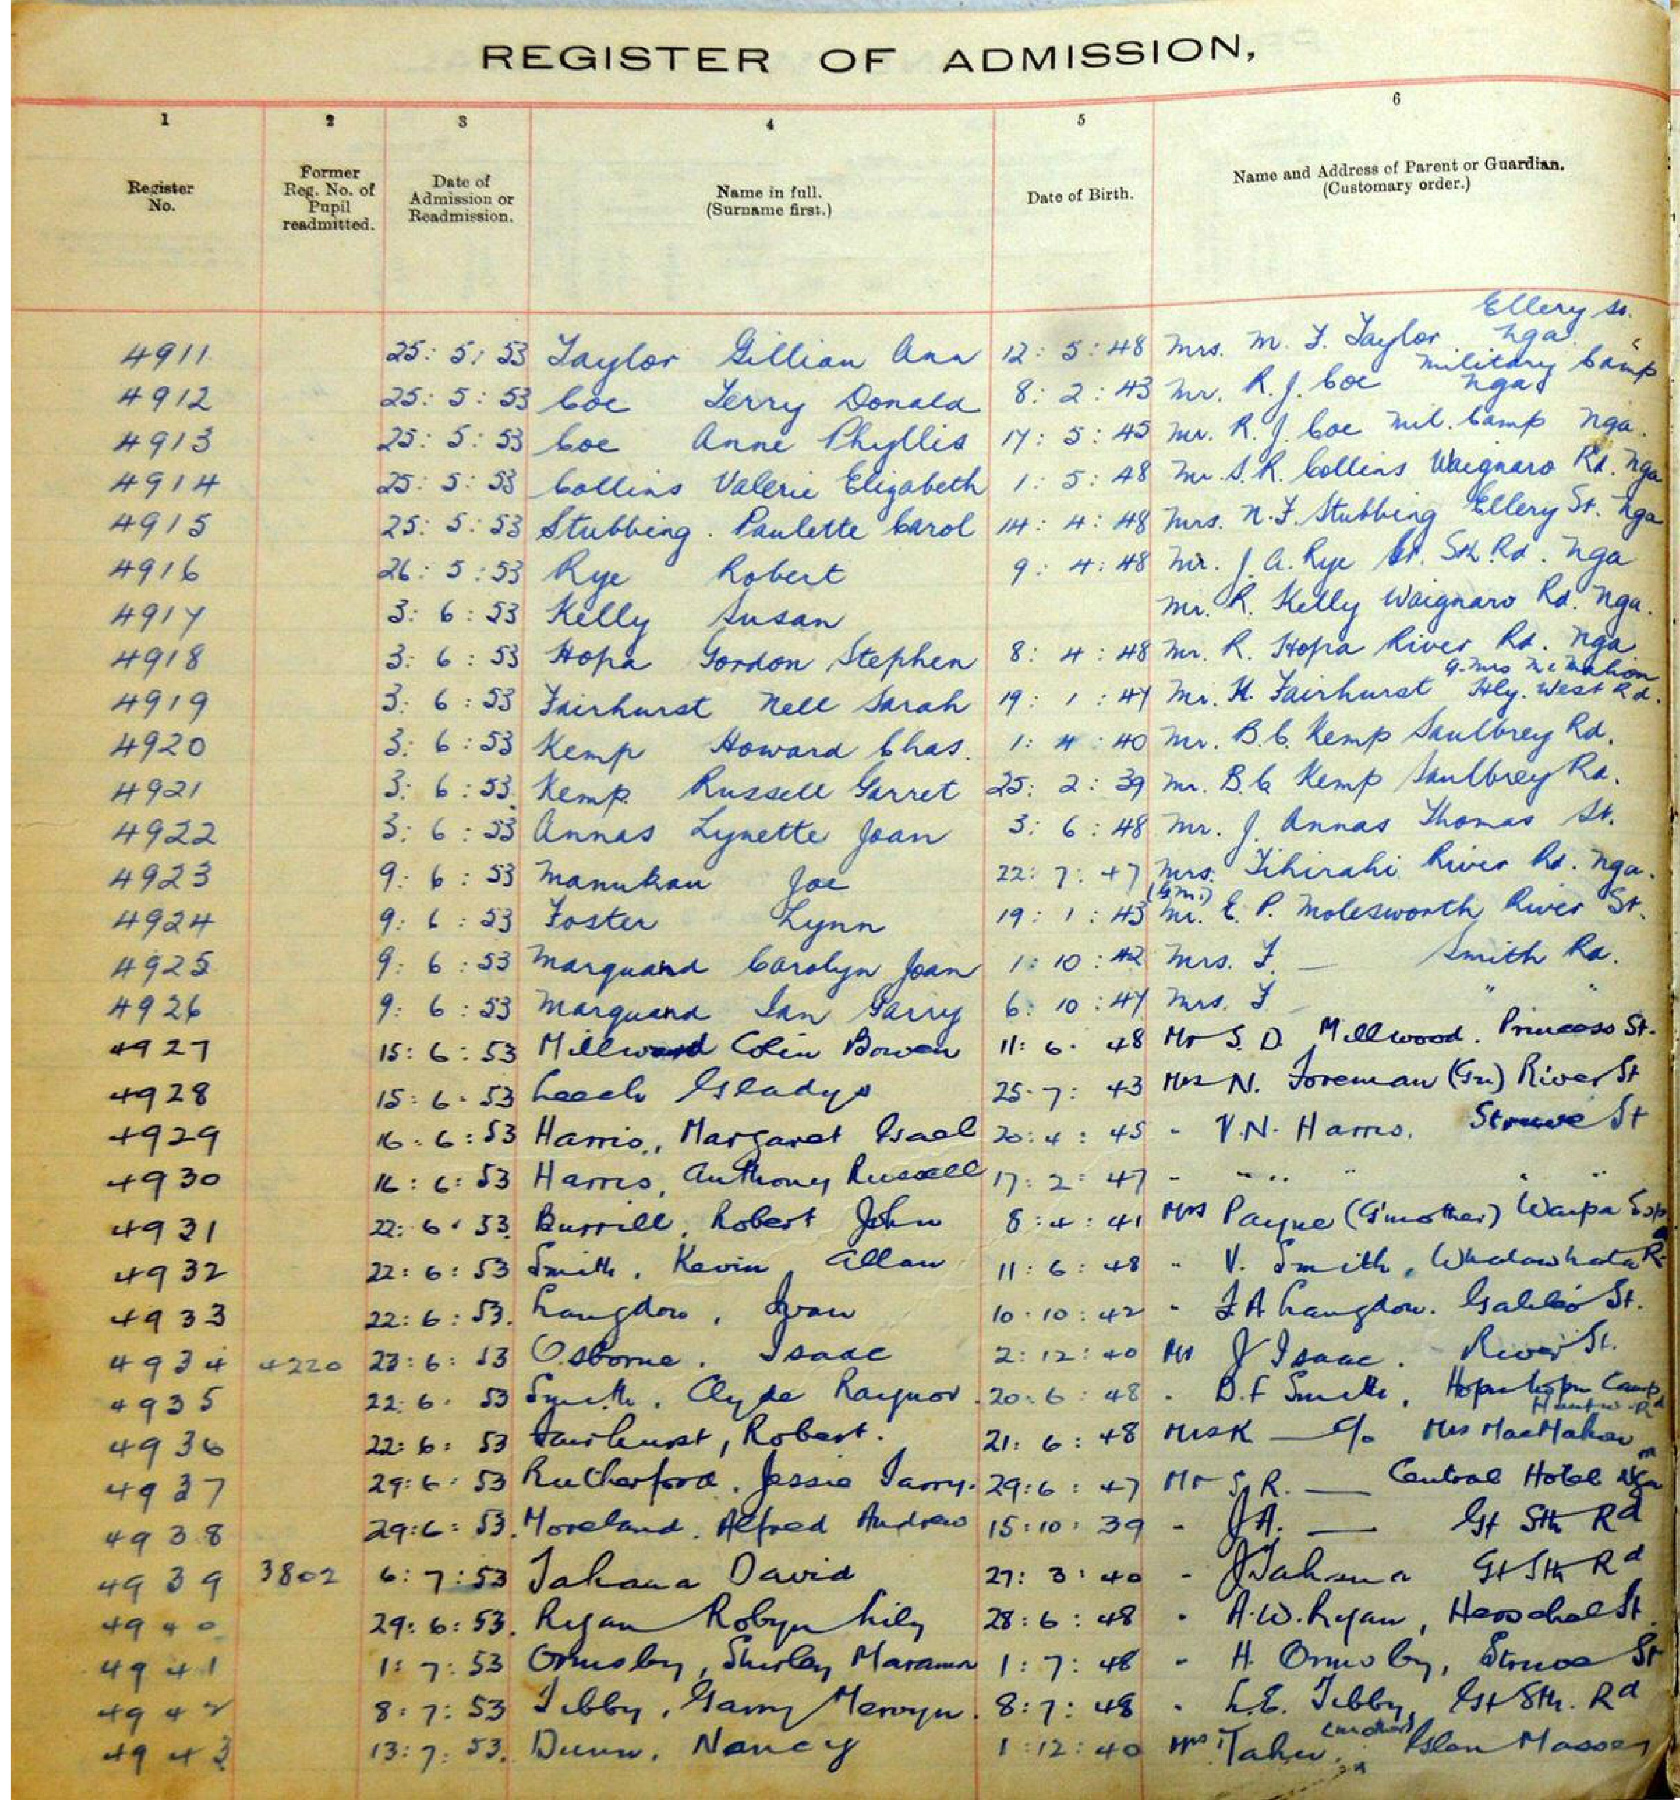 REGISTER OF ADMISSION,
1 2 3 4 5 6
Register No. Former Reg. No. of Pupil readmitted. Date of Admission or Readmission. Name in full. (Surname first.) Date of Birth. Name and Address of Parent or Guardian. (Customary order.)
4911 25:5:53 Taylor Gillian Ann 12:5:48 Mrs. M. F. Taylor Ellery St. Nga.
4912 25:5:53 Coe Terry Donald 8:2:43 Mr. R. J. Coe Military Camp Nga
4913 25:5:53 Coe Anne Phyllis 17:5:45 Mr. R. J. Coe Mil. Camp Nga.
4914 25:5:53 Collins Valerie Elizabeth 1:5:48 Mr. S. R. Collins Waignaro Rd. Nga
4915 25:5:53 Stubbing. Paulette Carol 14:4:48 Mrs. N. F. Stubbing Ellery St. Nga
4916 26:5:53 Rye Robert 9:4:48 Mr. J. A. Rye Gt. Sth. Rd. Nga
4917 3:6:53 Kelly Susan Mr. R. Kelly Waignaro Rd. Nga.
4918 3:6:53 Hopa Gordon Stephen 8:4:48 Mr. R. Hopa River Rd. Nga
4919 3:6:53 Fairhurst Nell Sarah 19:1:47 Mr. H. Fairhurst Hly. West Rd.
4920 3:6:53 Kemp Howard Chas. 1:4:40 Mr. B. C. Kemp Saulbrey Rd.
4921 3:6:53 Kemp Russell Garret 25:2:39 Mr. B. C. Kemp Saulbrey Rd.
4922 3:6:53 Annas Lynette Joan 3:6:48 Mr. J. Annas Thomas St.
4923 9:6:53 Manukau Joe 22:7:47 Mrs. Tihirahi River Rd. Nga.
(G.M.)
4924 9:6:53 Foster Lynn 19:1:43 Mr. E. P. Molesworth River St.
4925 9:6:53 Marquand Carolyn Joan 1:10:42 Mrs. F. — Smith Rd.
4926 9:6:53 Marquand Ian Garry 6:10:47 Mrs. F " "
4927 15:6:53 Millwood Colin Bowen 11:6:48 Mr S. D. Millwood. Princess St.
4928 15:6:53 Leech Gladys 25:7:43 Mrs N. Foreman (Gn) River St
4929 16:6:53 Harris, Margaret Isabel 20:4:45 - V. N. Harris. Struve St
4930 16:6:53 Harris, Anthony Russell 17:2:47 - " " " "
4931 22:6:53 Burrill, Robert John 8:4:41 Mrs Payne (G'mother) Waipa
4932 22:6:53 Smith, Kevin Allan 11:6:48 - V. Smith, Whatawhata Rd
4933 22:6:53. Langdon, Ivan 10:10:42 - F A Langdon. Galileo St.
4934 4220 23:6:53 Osborne. Isaac 2:12:40 Mr J Isaac. River St.
4935 22:6:53 Smith, Clyde Raynor. 20:6:48 - D. F Smith, Hopuhopu Camp
4936 22:6:53 Fairhurst, Robert. 21:6:48 Mrs K — c/o Mrs MacMahon
4937 29:6:53 Rutherford, Jessie 29:6:47 Mr S. R. — Central Hotel Nga
4938 29:6:53. Moreland, Alfred Andrew 15:10:39 - J. A. — Gt Sth Rd
4939 3802 6:7:53 Tahana David 27:3:40 - J Tahana Gt Sth Rd
4940 29:6:53. Ryan Robyn Lily 28:6:48 - A. W. Ryan, Herschel St.
4941 1:7:53 Ormsby, Shirley 1:7:48 - H. Ormsby, Struve St
4942 8:7:53 Tibby, Garry Mervyn. 8:7:48 - L. E. Tibby, Gt Sth. Rd
4943 13:7:53. Dunn, Nancy 1:12:40 Mrs (mother)